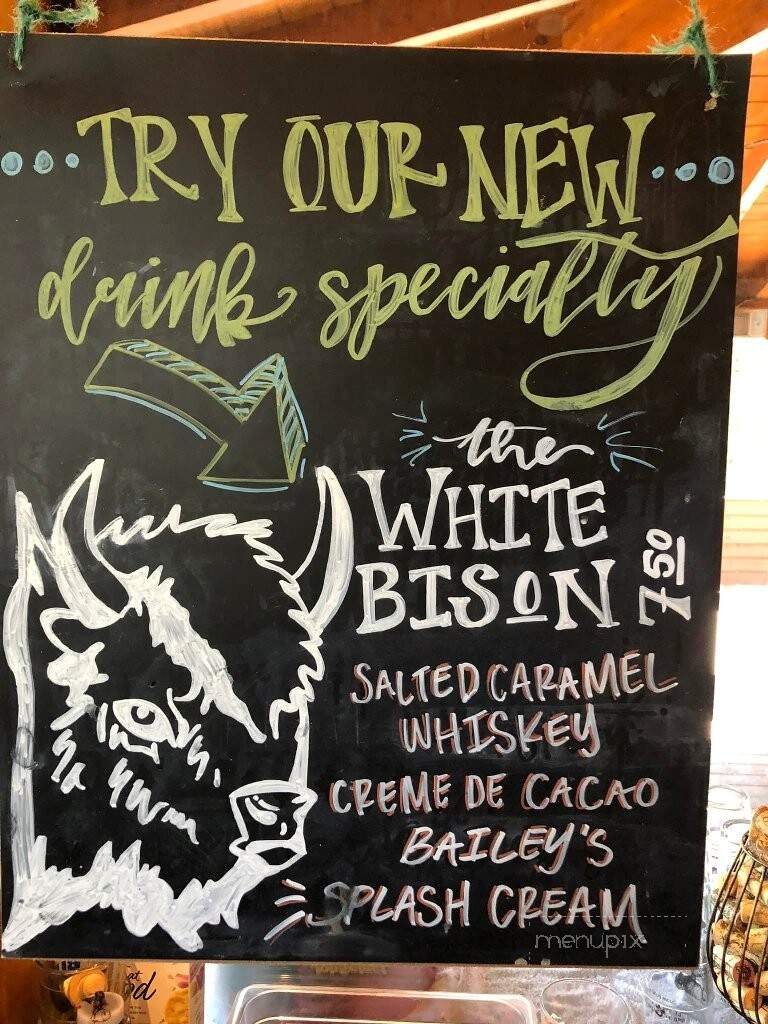 TRY OUR NEW
drink specialty
the
WHITE
BISON 7.50
SALTED CARAMEL
WHISKEY
CREME DE CACAO
BAILEY'S
SPLASH CREAM
menupix